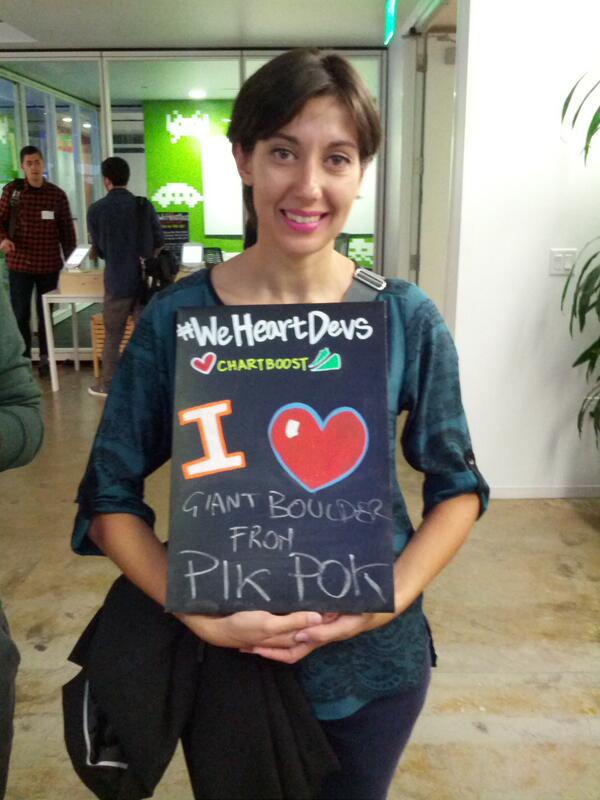 #WeHeartDevs
CHARTBOOST
I
GIANT BOULDER
FROM
PIK POK